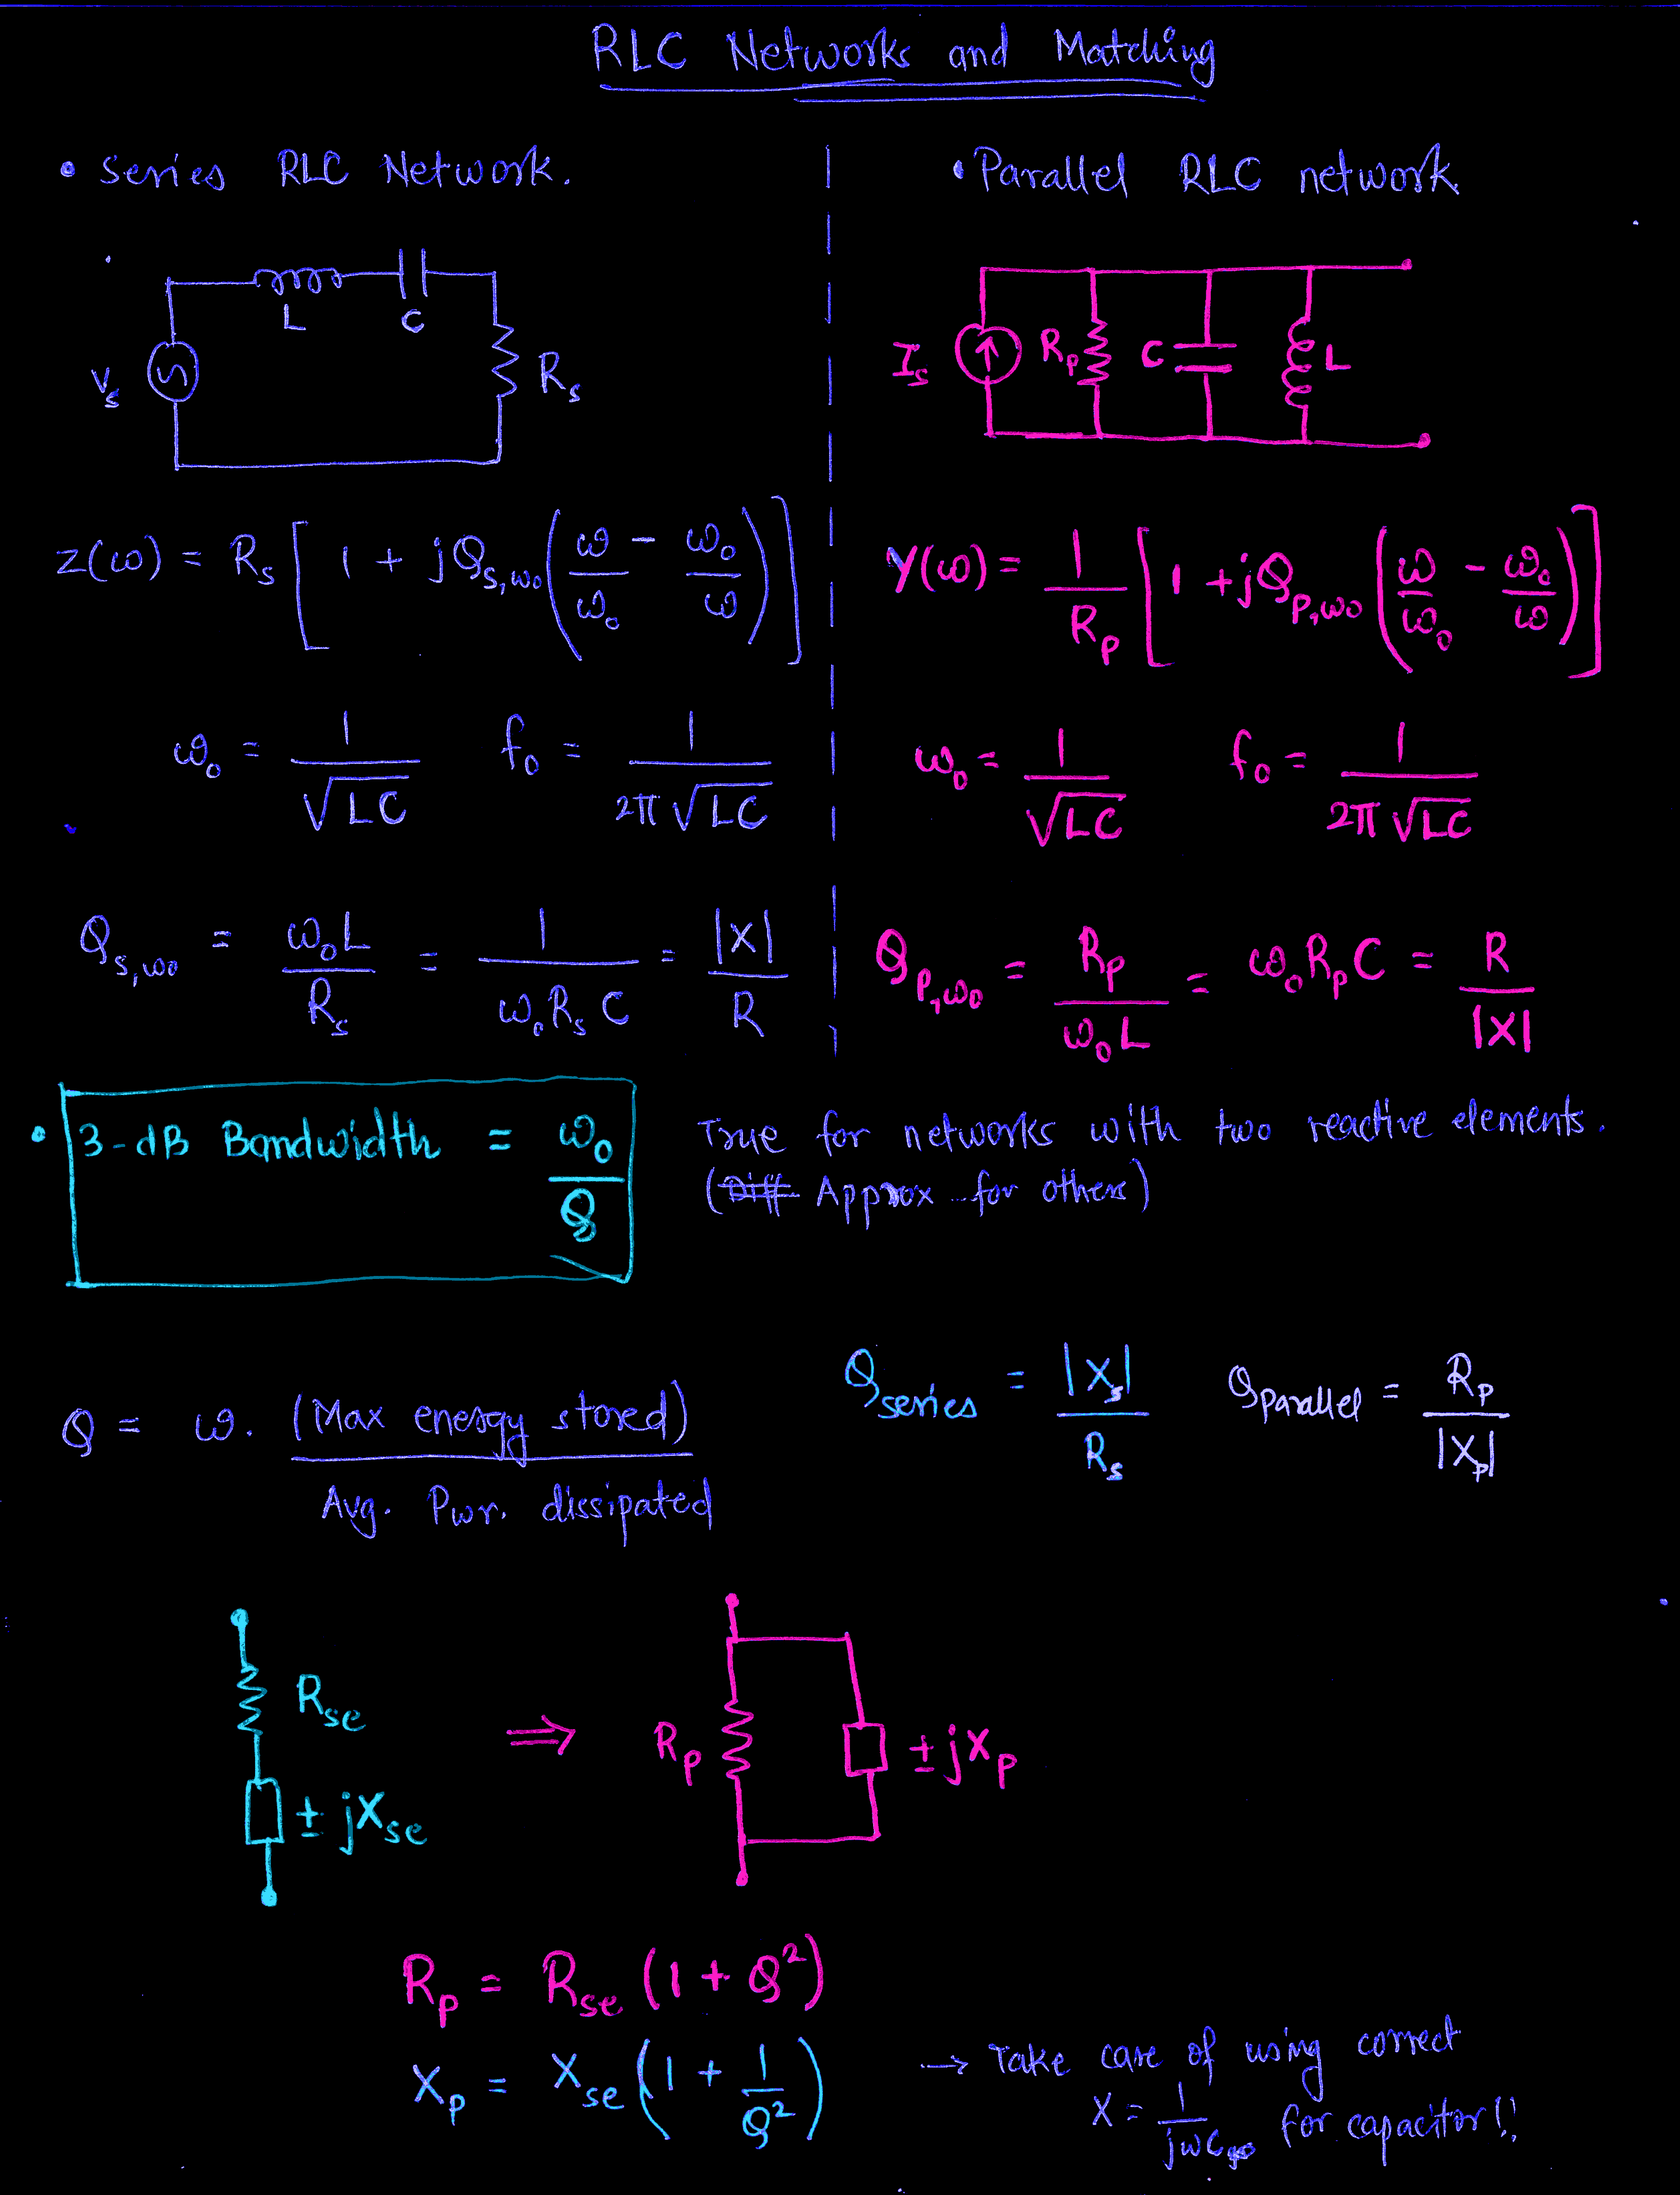 RLC Networks and Matching
• Series RLC Network.
L C
V_s R_s
z(ω) = R_s [ 1 + jQ_{s,ω₀} ( ω/ω₀ − ω₀/ω ) ]
ω₀ = 1/√LC f₀ = 1/2π√LC
Q_{s,ω₀} = ω₀L/R_s = 1/ω₀R_sC = |X|/R
• Parallel RLC network
I_s R_p C L
Y(ω) = 1/R_p [ 1 + jQ_{p,ω₀} ( ω/ω₀ − ω₀/ω ) ]
ω₀ = 1/√LC f₀ = 1/2π√LC
Q_{p,ω₀} = R_p/ω₀L = ω₀R_pC = R/|X|
• 3-dB Bandwidth = ω₀/Q
True for networks with two reactive elements.
(Diff Approx for others)
Q = ω. (Max energy stored)/Avg. Pwr. dissipated
Q_series = |X_s|/R_s Q_Parallel = R_p/|X_p|
R_se
± jX_se
⇒
R_p ± jX_p
R_p = R_se (1 + Q²)
X_p = X_se (1 + 1/Q²)
→ Take care of using correct
X = 1/jωC for capacitor!!